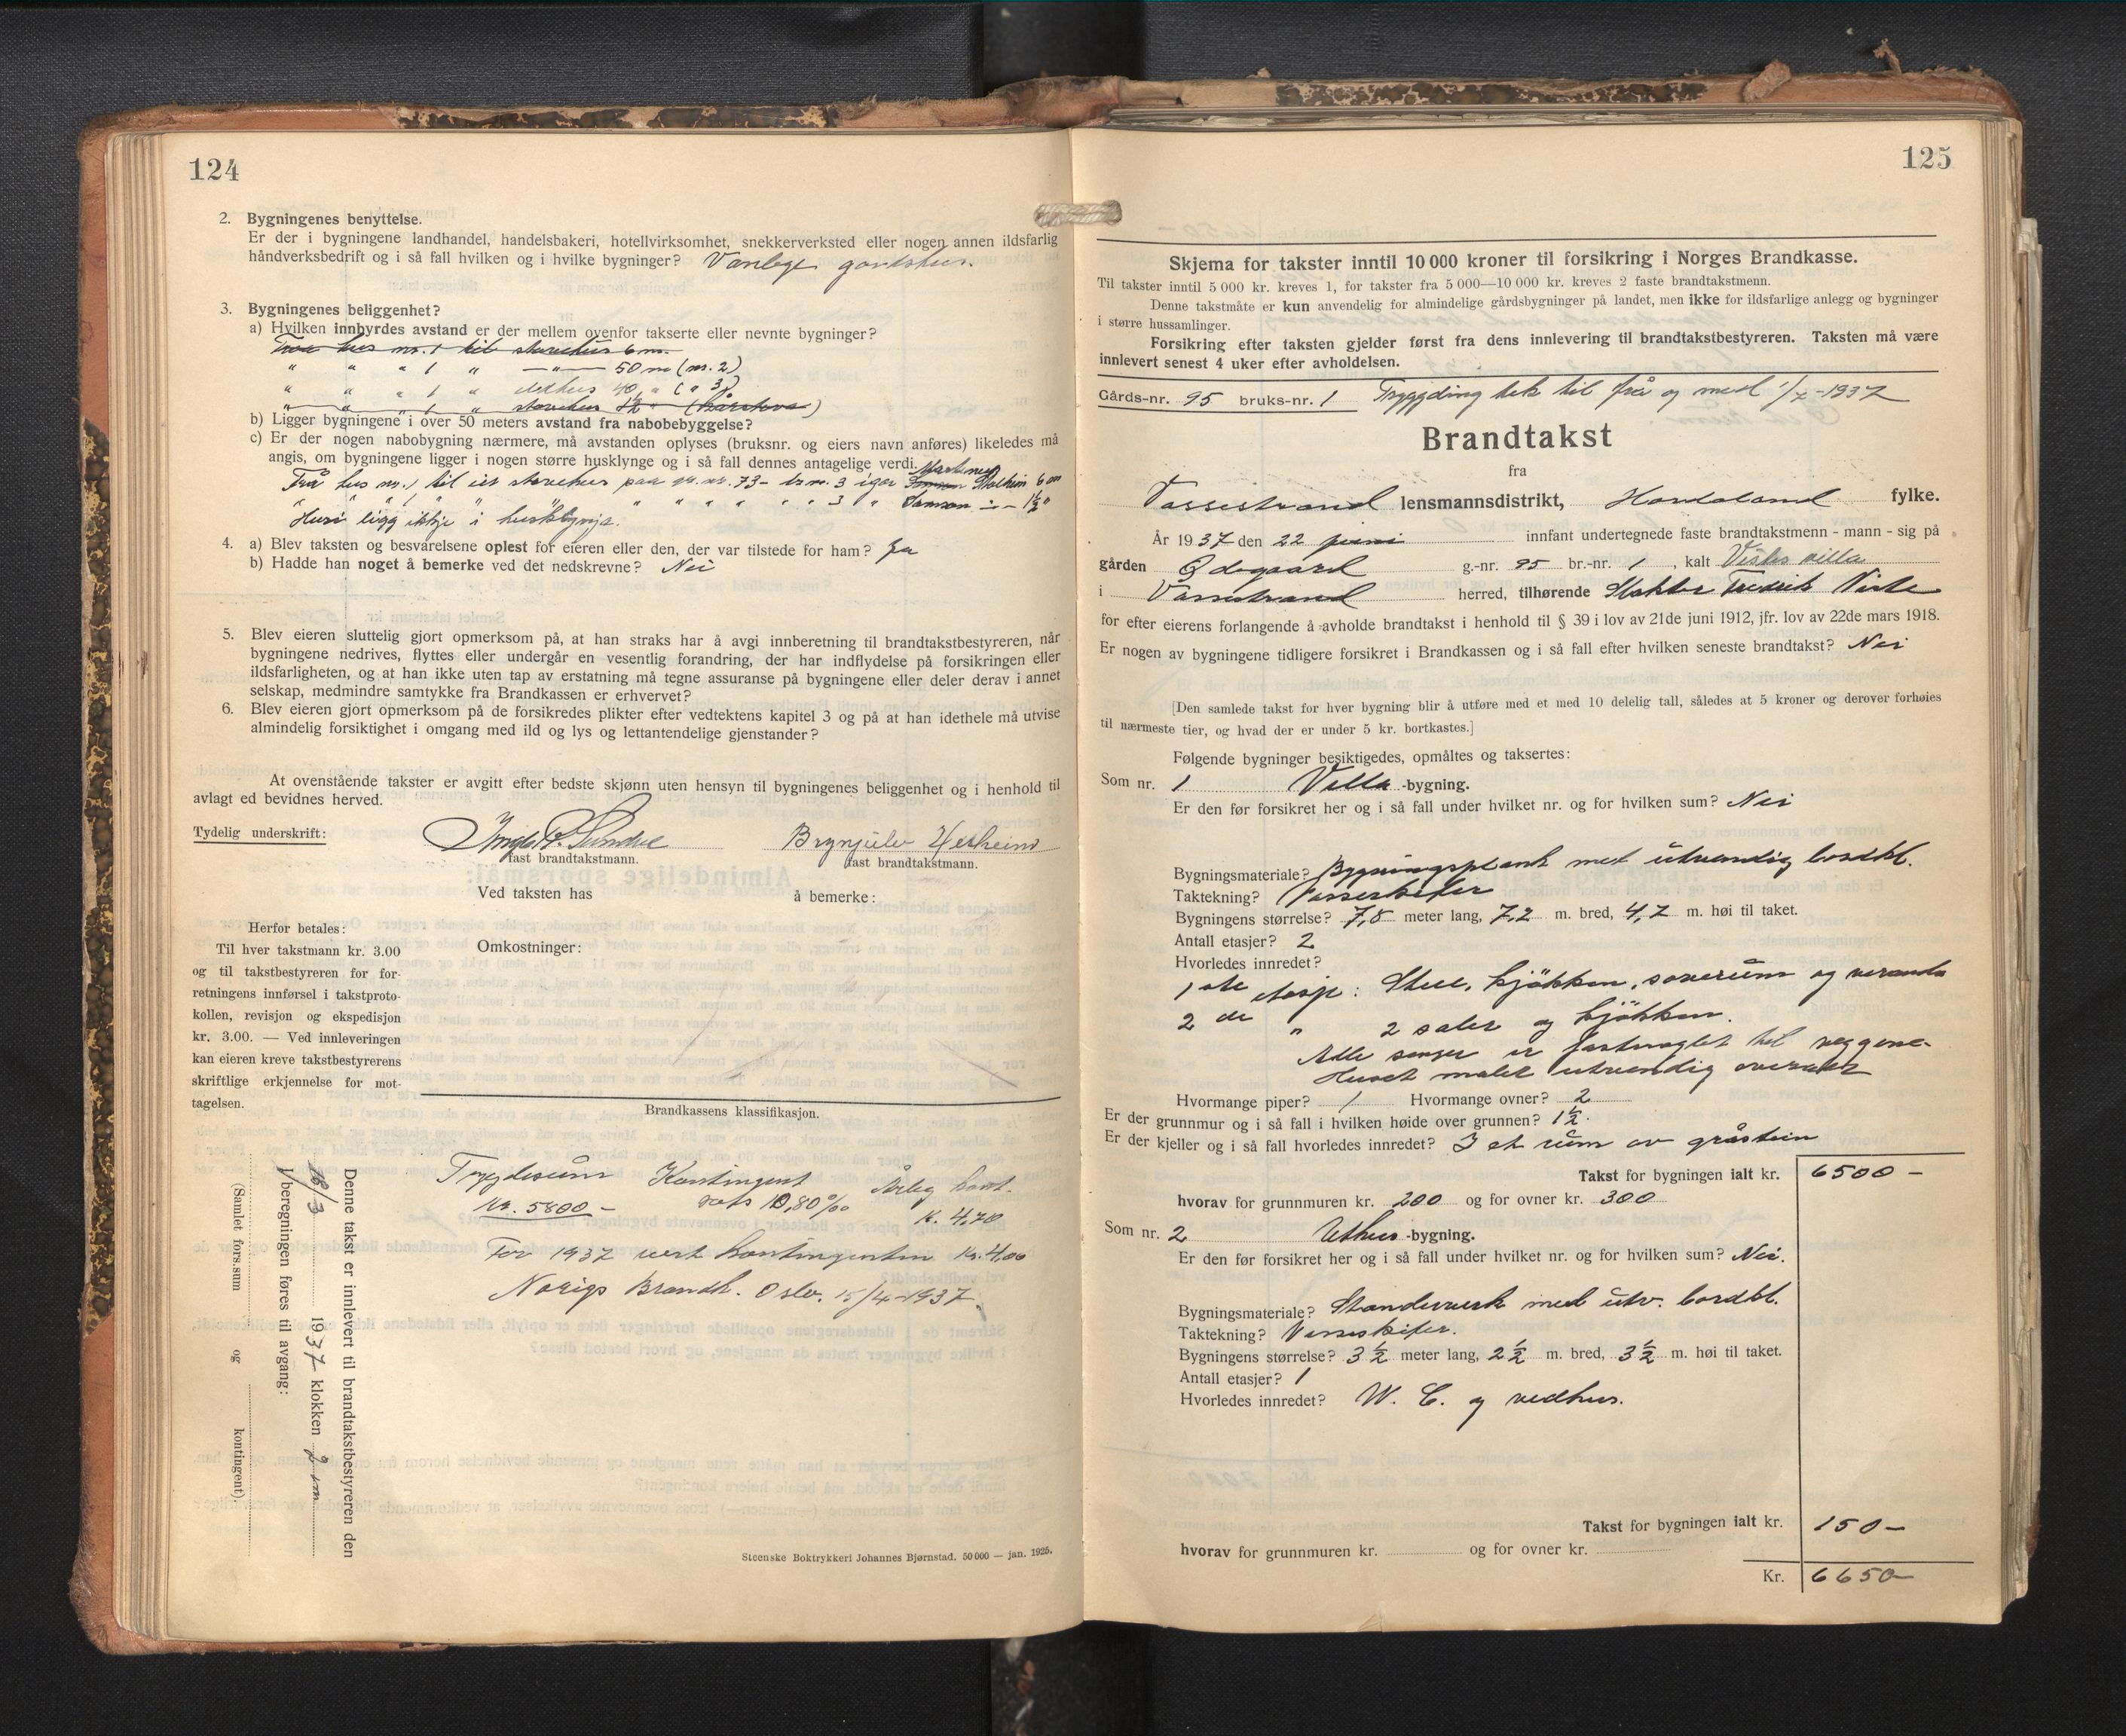 124
2. Bygningenes benyttelse.
Er der i bygningene landhandel, handelsbakeri, hotellvirksomhet, snekkerverksted eller nogen annen ildsfarlig
håndverksbedrift og i så fall hvilken og i hvilke bygninger? Vanlege gardshus.
3. Bygningenes beliggenhet?
a) Hvilken innbyrdes avstand er der mellem ovenfor takserte eller nevnte bygninger?
Fraa hus nr. 1 til stovehus 6 m.
" " " 1 " —"— 50 m (nr. 2)
" " " 1 " eldhus 40 " (" 3)
" " " 1 " stovehus 1½ "
b) Ligger bygningene i over 50 meters avstand fra nabobebyggelse?
c) Er der nogen nabobygning nærmere, må avstanden oplyses (bruksnr. og eiers navn anføres) likeledes må
angis, om bygningene ligger i nogen større husklynge og i så fall dennes antagelige verdi.
Frå hus nr. 1 til eit stovehus paa gr. nr. 73 - br. nr. 3 igar Stalheim 6 m
" " " " " " " " " 3 " Samson — " — 1½ "
Husi ligg ikkje i husklyngja.
4. a) Blev taksten og besvarelsene oplest for eieren eller den, der var tilstede for ham? Ja
b) Hadde han noget å bemerke ved det nedskrevne? Nei
5. Blev eieren sluttelig gjort opmerksom på, at han straks har å avgi innberetning til brandtakstbestyreren, når
bygningene nedrives, flyttes eller undergår en vesentlig forandring, der har indflydelse på forsikringen eller
ildsfarligheten, og at han ikke uten tap av erstatning må tegne assuranse på bygningene eller deler derav i annet
selskap, medmindre samtykke fra Brandkassen er erhvervet?
6. Blev eieren gjort opmerksom på de forsikredes plikter efter vedtektens kapitel 3 og på at han idethele må utvise
almindelig forsiktighet i omgang med ild og lys og lettantendelige gjenstander?
At ovenstående takster er avgitt efter bedste skjønn uten hensyn til bygningenes beliggenhet og i henhold til
avlagt ed bevidnes herved.
Tydelig underskrift:
Brynjulv Helheim
fast brandtakstmann.
fast brandtakstmann.
Ved taksten has å bemerke:
Herfor betales:
Til hver takstmann kr. 3.00
og til takstbestyreren for for-
retningens innførsel i takstproto-
kollen, revisjon og ekspedisjon
kr. 3.00. — Ved innleveringen
kan eieren kreve takstbestyrerens
skriftlige erkjennelse for mot-
tagelsen.
Omkostninger:
Brandkassens klassifikasjon.
Trygdesum Kontingent Årleg kont.
Kr. 5800 - sats 0,80 ‰ K. 4,70
For 1937 vert kontingenten Kr. 4,00
Norigs Brandk. Oslo. 15/4-1937.
Denne takst er innlevert til brandtakstbestyreren den
18/3 1937 klokken 2 em
I beregningen føres til avgang:
(Samlet fors.sum og kontingent)
Steenske Boktrykkeri Johannes Bjørnstad. 50 000 — jan. 1925.
125
Skjema for takster inntil 10 000 kroner til forsikring i Norges Brandkasse.
Til takster inntil 5 000 kr. kreves 1, for takster fra 5 000—10 000 kr. kreves 2 faste brandtakstmenn.
Denne takstmåte er kun anvendelig for almindelige gårdsbygninger på landet, men ikke for ildsfarlige anlegg og bygninger
i større hussamlinger.
Forsikring efter taksten gjelder først fra dens innlevering til brandtakstbestyreren. Taksten må være
innlevert senest 4 uker efter avholdelsen.
Gårds-nr. 95 bruks-nr. 1 Tryggding tek til frå og med 1/7-1937
Brandtakst
fra
Vossestrand lensmannsdistrikt, Hordaland fylke.
År 1937 den 22 juni innfant undertegnede faste brandtakstmenn - mann - sig på
gården Ødegaard g.-nr. 95 br.-nr. 1, kalt Vistes villa
i Vossestrand herred, tilhørende Fredrik Viste
for efter eierens forlangende å avholde brandtakst i henhold til § 39 i lov av 21de juni 1912, jfr. lov av 22de mars 1918.
Er nogen av bygningene tidligere forsikret i Brandkassen og i så fall efter hvilken seneste brandtakst? Nei
[Den samlede takst for hver bygning blir å utføre med et med 10 delelig tall, således at 5 kroner og derover forhøies
til nærmeste tier, og hvad der er under 5 kr. bortkastes.]
Følgende bygninger besiktigedes, opmåltes og taksertes:
Som nr. 1 Villa -bygning.
Er den før forsikret her og i så fall under hvilket nr. og for hvilken sum? Nei
Bygningsmateriale? Bygningsplank med utvendig bordkl.
Taktekning? Vosseskifer
Bygningens størrelse? 7,8 meter lang, 7,2 m. bred, 4,7 m. høi til taket.
Antall etasjer? 2
Hvorledes innredet?
1ste etasje: Stue, kjøkken, soverum og veranda
2 de " 2 saler og kjøkken.
Alle senger er fastnaglet til veggene.
Huset malt utvendig overalt
Hvormange piper? 1 Hvormange ovner? 2
Er der grunnmur og i så fall i hvilken høide over grunnen? 1½.
Er der kjeller og i så fall hvorledes innredet? I et rum av gråstein
Takst for bygningen ialt kr. 6500 -
hvorav for grunnmuren kr. 200 og for ovner kr. 300
Som nr. 2 Uthus -bygning.
Er den før forsikret her og i så fall under hvilket nr. og for hvilken sum? Nei.
Bygningsmateriale? Standerverk med utv. bordkl.
Taktekning? Vosseskifer.
Bygningens størrelse? 3½ meter lang, 2½ m. bred, 3½ m. høi til taket.
Antall etasjer? 1
Hvorledes innredet? W. C. og vedhus.
Takst for bygningen ialt kr. 150 -
hvorav for grunnmuren kr. og for ovner kr.
Kr. 6650 -